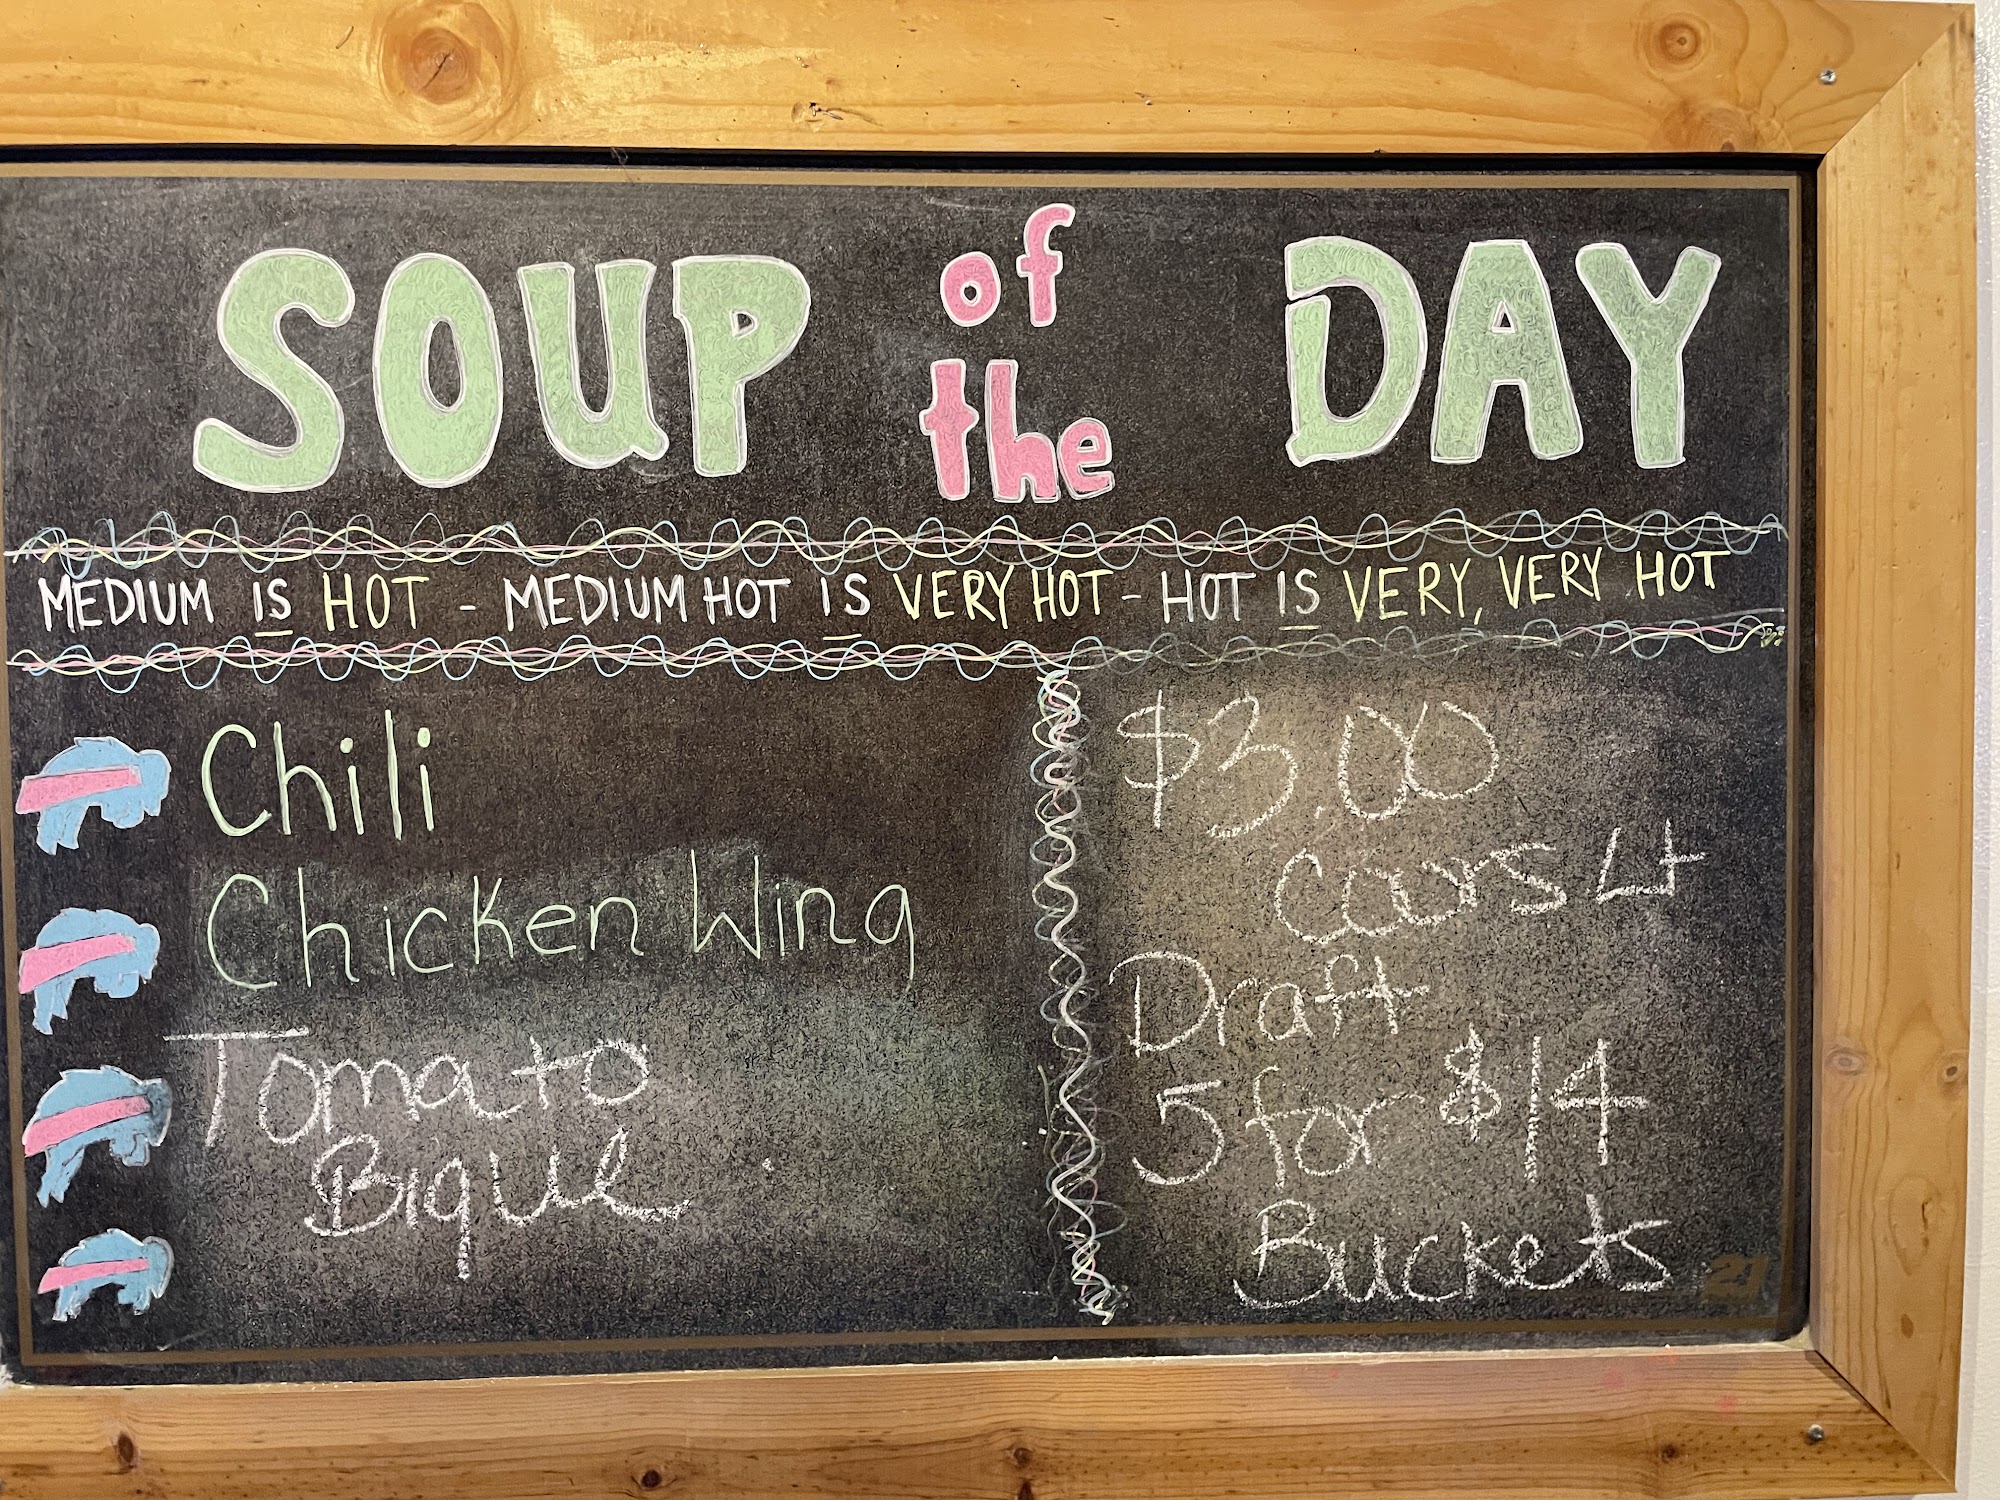 SOUP of the DAY
MEDIUM IS HOT - MEDIUM HOT IS VERY HOT - HOT IS VERY, VERY HOT
Chili
Chicken Wing
Tomato
Bique
$3.00
Coors Lt
Draft
5 for $14
Buckets
21